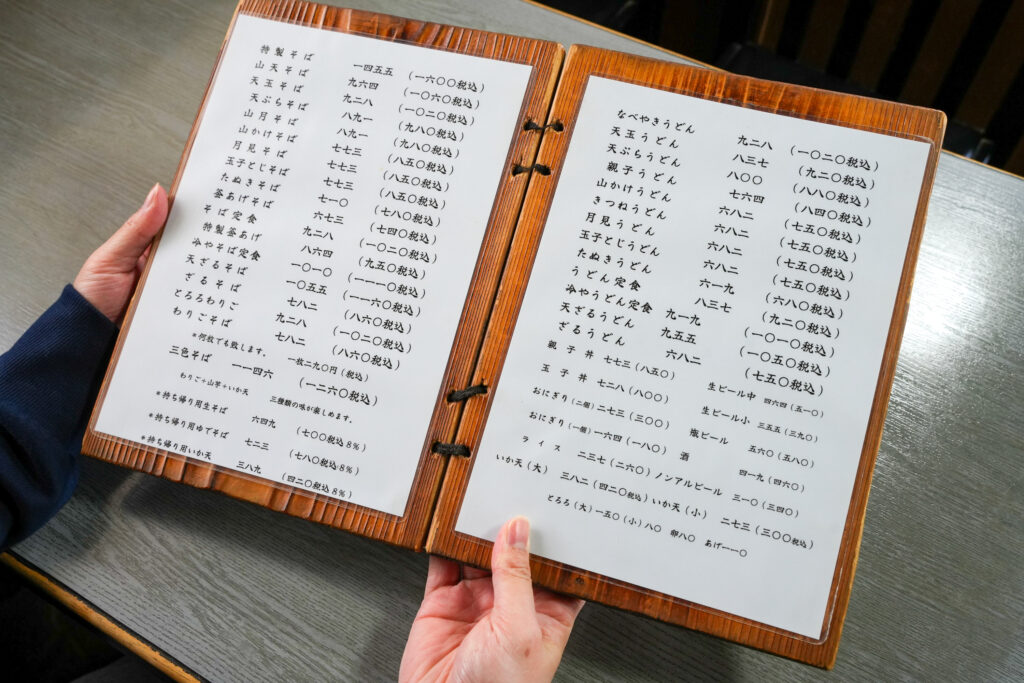 特製そば 一四五五 (一六〇〇税込)
山天そば 九六四 (一〇六〇税込)
天玉そば 九二八 (一〇二〇税込)
天ぷらそば 八九一 (九八〇税込)
山月そば 八九一 (九八〇税込)
山かけそば 七七三 (八五〇税込)
月見そば 七七三 (八五〇税込)
玉子とじそば 七七三 (八五〇税込)
たぬきそば 七一〇 (七八〇税込)
釜あげそば 六七三 (七四〇税込)
そば定食 九二八 (一〇二〇税込)
特製釜あげ 八六四 (九五〇税込)
冷やそば定食 一〇一〇 (一一一〇税込)
天ざるそば 一〇五五 (一一六〇税込)
ざるそば 七八二 (八六〇税込)
とろろわりご 九二八 (一〇二〇税込)
わりごそば 七八二 (八六〇税込)
*何枚でも致します。 一枚二九〇円(税込)
三色そば 一一四六 (一二六〇税込)
わりご+山芋+いか天 三種類の味が楽しめます。
*持ち帰り用生そば 六四九 (七〇〇税込8%)
*持ち帰り用ゆでそば 七二三 (七八〇税込8%)
*持ち帰り用いか天 三八九 (四二〇税込8%)
なべやきうどん 九二八 (一〇二〇税込)
天玉うどん 八三七 (九二〇税込)
天ぷらうどん 八〇〇 (八八〇税込)
親子うどん 七六四 (八四〇税込)
山かけうどん 六八二 (七五〇税込)
きつねうどん 六八二 (七五〇税込)
月見うどん 六八二 (七五〇税込)
玉子とじうどん 六八二 (七五〇税込)
たぬきうどん 六一九 (六八〇税込)
うどん定食 八三七 (九二〇税込)
冷やうどん定食 九一九 (一〇一〇税込)
天ざるうどん 九五五 (一〇五〇税込)
ざるうどん 六八二 (七五〇税込)
親子丼 七七三(八五〇) 生ビール中 四六四(五一〇)
玉子丼 七二八(八〇〇) 生ビール小 三五五(三九〇)
おにぎり(二個)二七三(三〇〇) 瓶ビール 五六〇(五八〇)
おにぎり(一個)一六四(一八〇) 酒 四一九(四六〇)
ライス 二三七(二六〇) ノンアルビール 三一〇(三四〇)
いか天(大) 三八二(四二〇税込) いか天(小) 二七三(三〇〇税込)
とろろ(大)一五〇(小)八〇 卵八〇 あげ一一〇